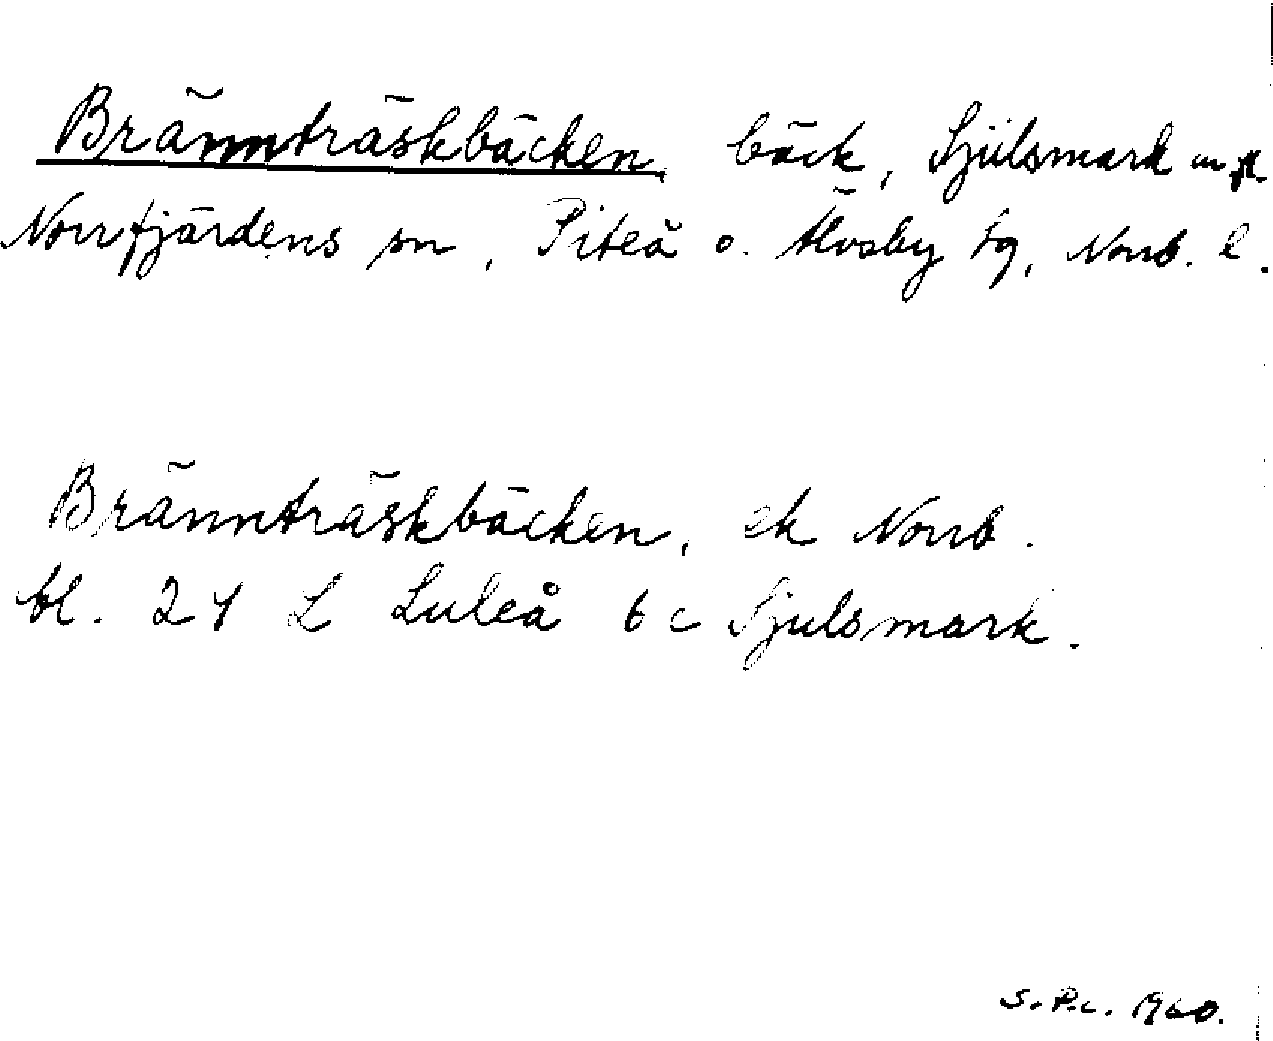 Brännträskbäcken, bäck, Sjulsmark m.fl.
Norrfjärdens sn, Piteå o. Älvsby tg, Norrb. l.
Brännträskbäcken, ek Norrb.
bl. 24 L Luleå 6 c Sjulsmark.
S.P.c. 1960.